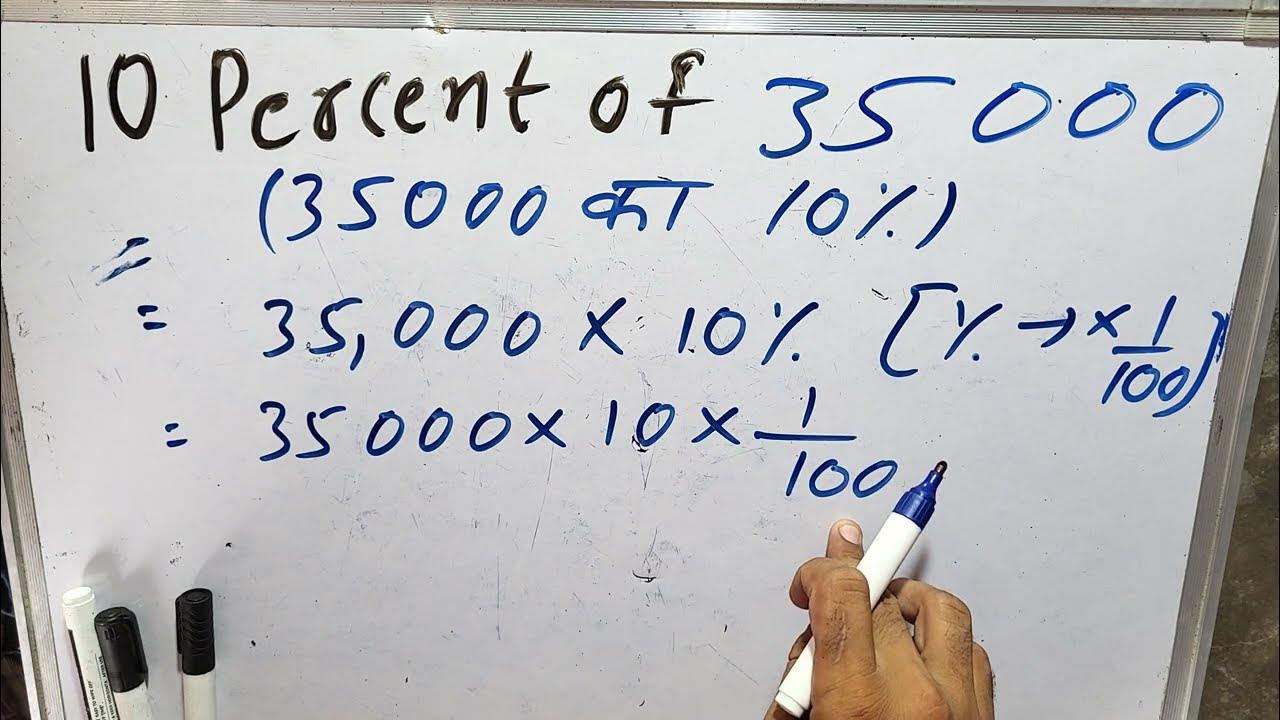 10 Percent of 35000
(35000 का 10%)
=
= 35,000 × 10% [% → × 1/100]
= 35000 × 10 × 1/100